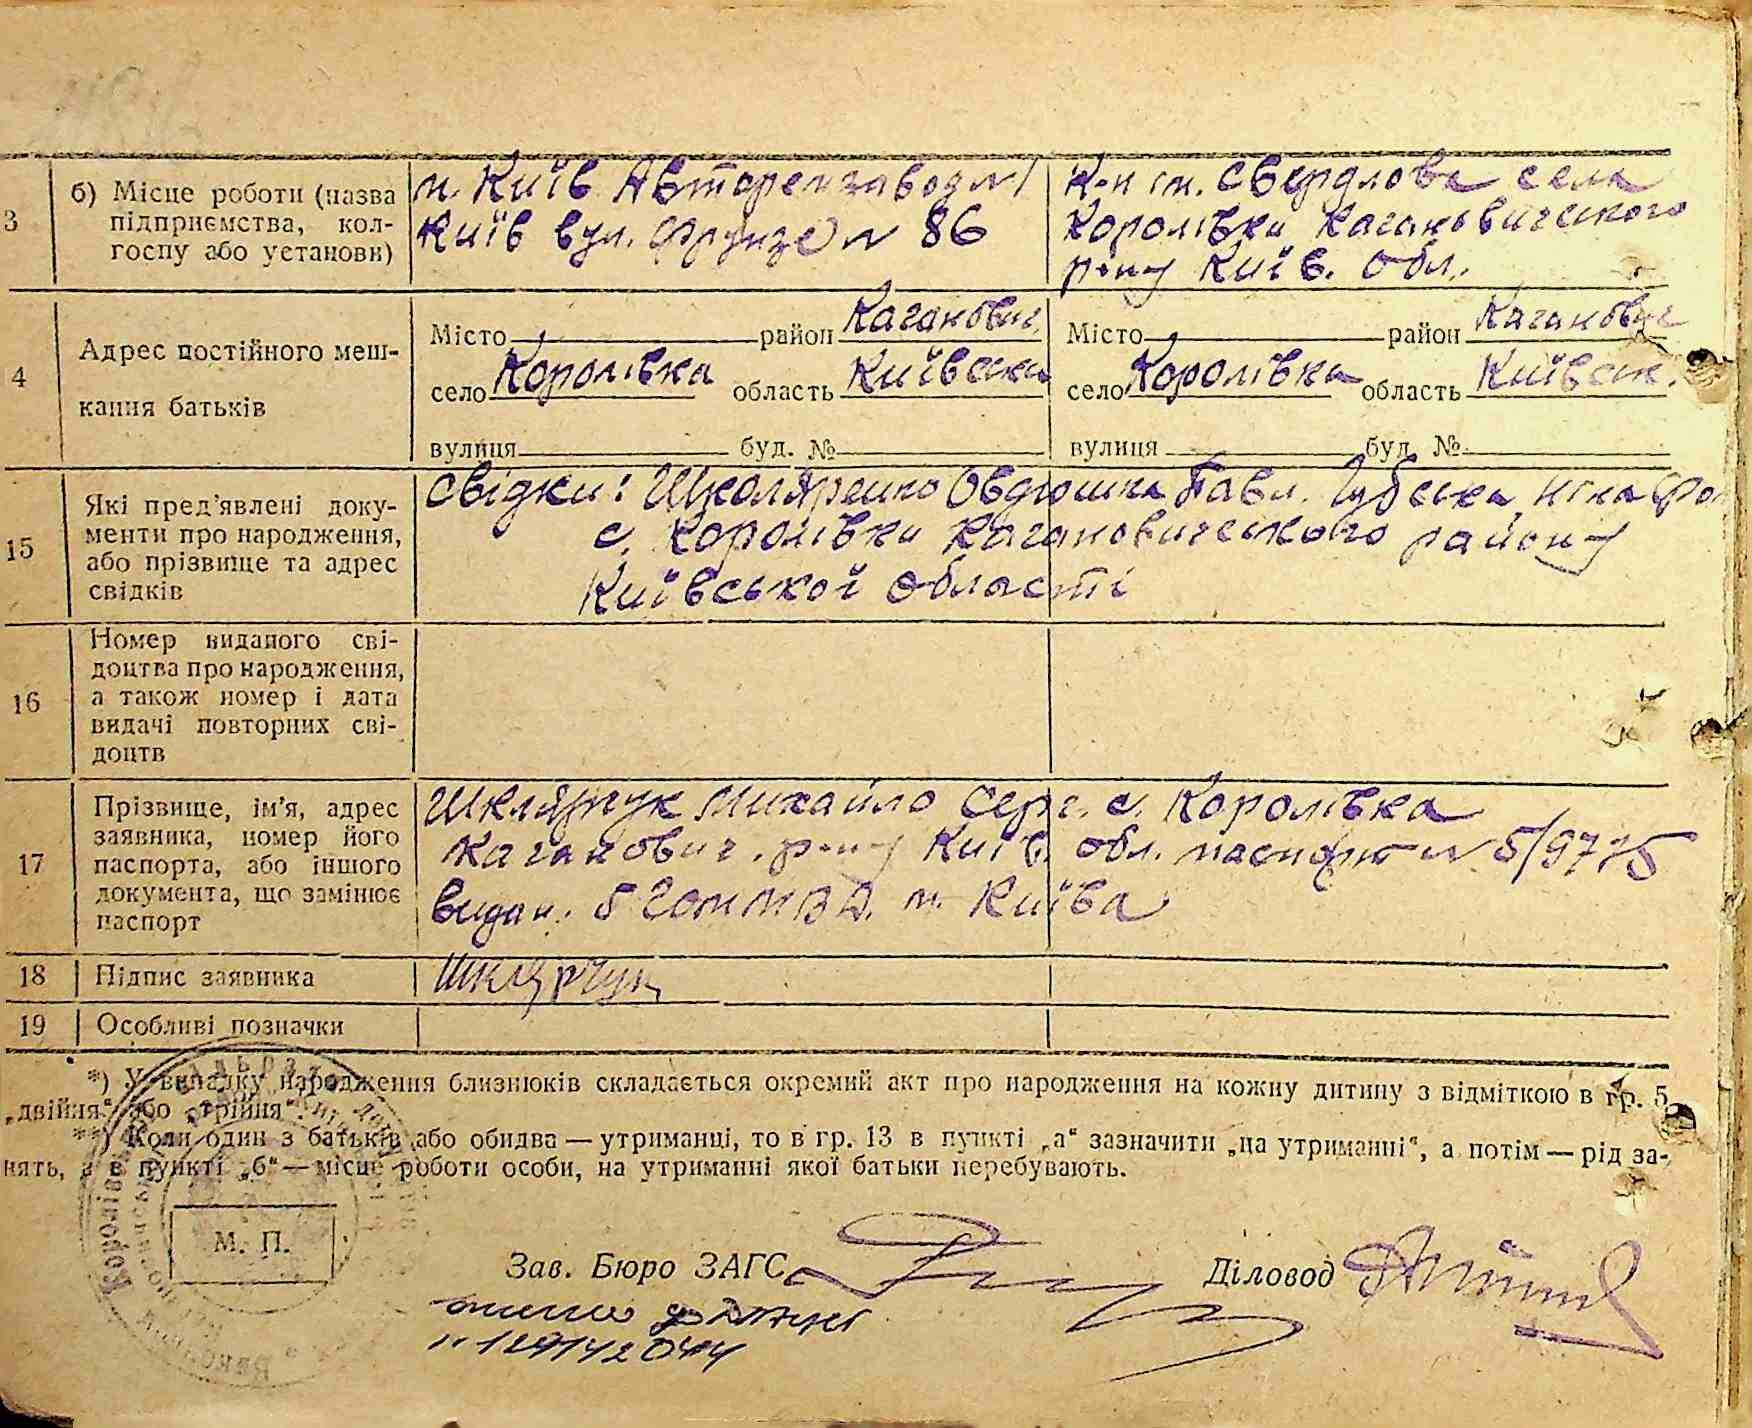 3
б) Місце роботи (назва
підприємства, кол-
госпу або установи)
м. Київ Авторемзавод №1
Київ вул. Фрунзе № 86
К-п ім. Свердлова села
Королівки Кагановичського
р-ну Київ. обл.
4
Адрес постійного меш-
кання батьків
Місто район Каганович.
село Королівка область Київська
вулиця буд. №
Місто район Каганович
село Королівка область Київськ.
вулиця буд. №
15
Які пред'явлені доку-
менти про народження,
або прізвище та адрес
свідків
Свідки: Школяренко Овдюшка Павл.
с. Королівки Кагановичського району
Київської області
16
Номер виданого сві-
доцтва про народження,
а також номер і дата
видачі повторних сві-
доцтв
17
Прізвище, ім'я, адрес
заявника, номер його
паспорта, або іншого
документа, що замінює
паспорт
Шклярчук Михайло Серг. с. Королівка
Каганович. р-ну Київ. обл. паспорт № 5/9775
видан. 5 м. Київа
18
Підпис заявника
Шклярчук
19
Особливі позначки
*) У випадку народження близнюків складається окремий акт про народження на кожну дитину з відміткою в гр. 5
„двійня“ або „трійня“.
**) Коли один з батьків або обидва — утриманці, то в гр. 13 в пункті „а“ зазначити „на утриманні“, а потім — рід за-
нять, а в пункті „б“ — місце роботи особи, на утриманні якої батьки перебувають.
М. П.
Зав. Бюро ЗАГС
Діловод